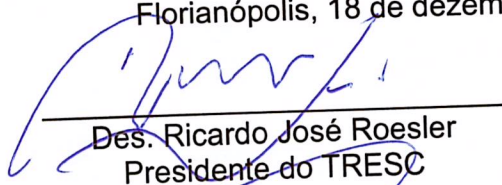 Florianópolis, 18 de dezem
Des. Ricardo José Roesler
Presidente do TRESC